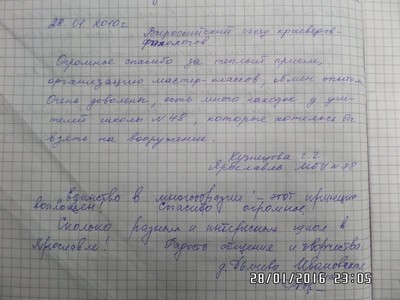 28.01.2010 г
Всероссийский съезд краеведов-
филологов.
Огромное спасибо за теплый прием,
организацию мастер-классов, обмен опытом.
Очень довольны, есть много находок у учи-
телей школы №48, которые хотелось бы
взять на вооружение.
Кузнецова
Ярославль МОУ № 78
"Единство в многообразии" - этот принцип
воплощен! Спасибо огромное.
Сколько разных и интересных школ в
Ярославле! Радость общения и творчества.
Ивановская
28/01/2016 23:05